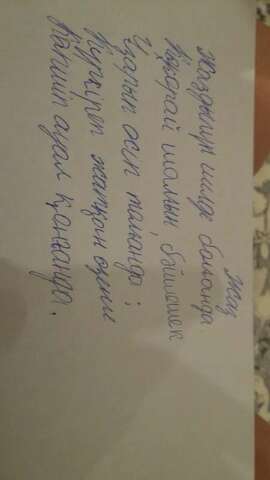 Жаз
Жаздыкүн шілде болғанда
Көкорай шалғын, бәйшешек
Ұзарып өсіп толғанда;
Күркіреп жатқан өзенге
Көшіп ауыл қонғанда.